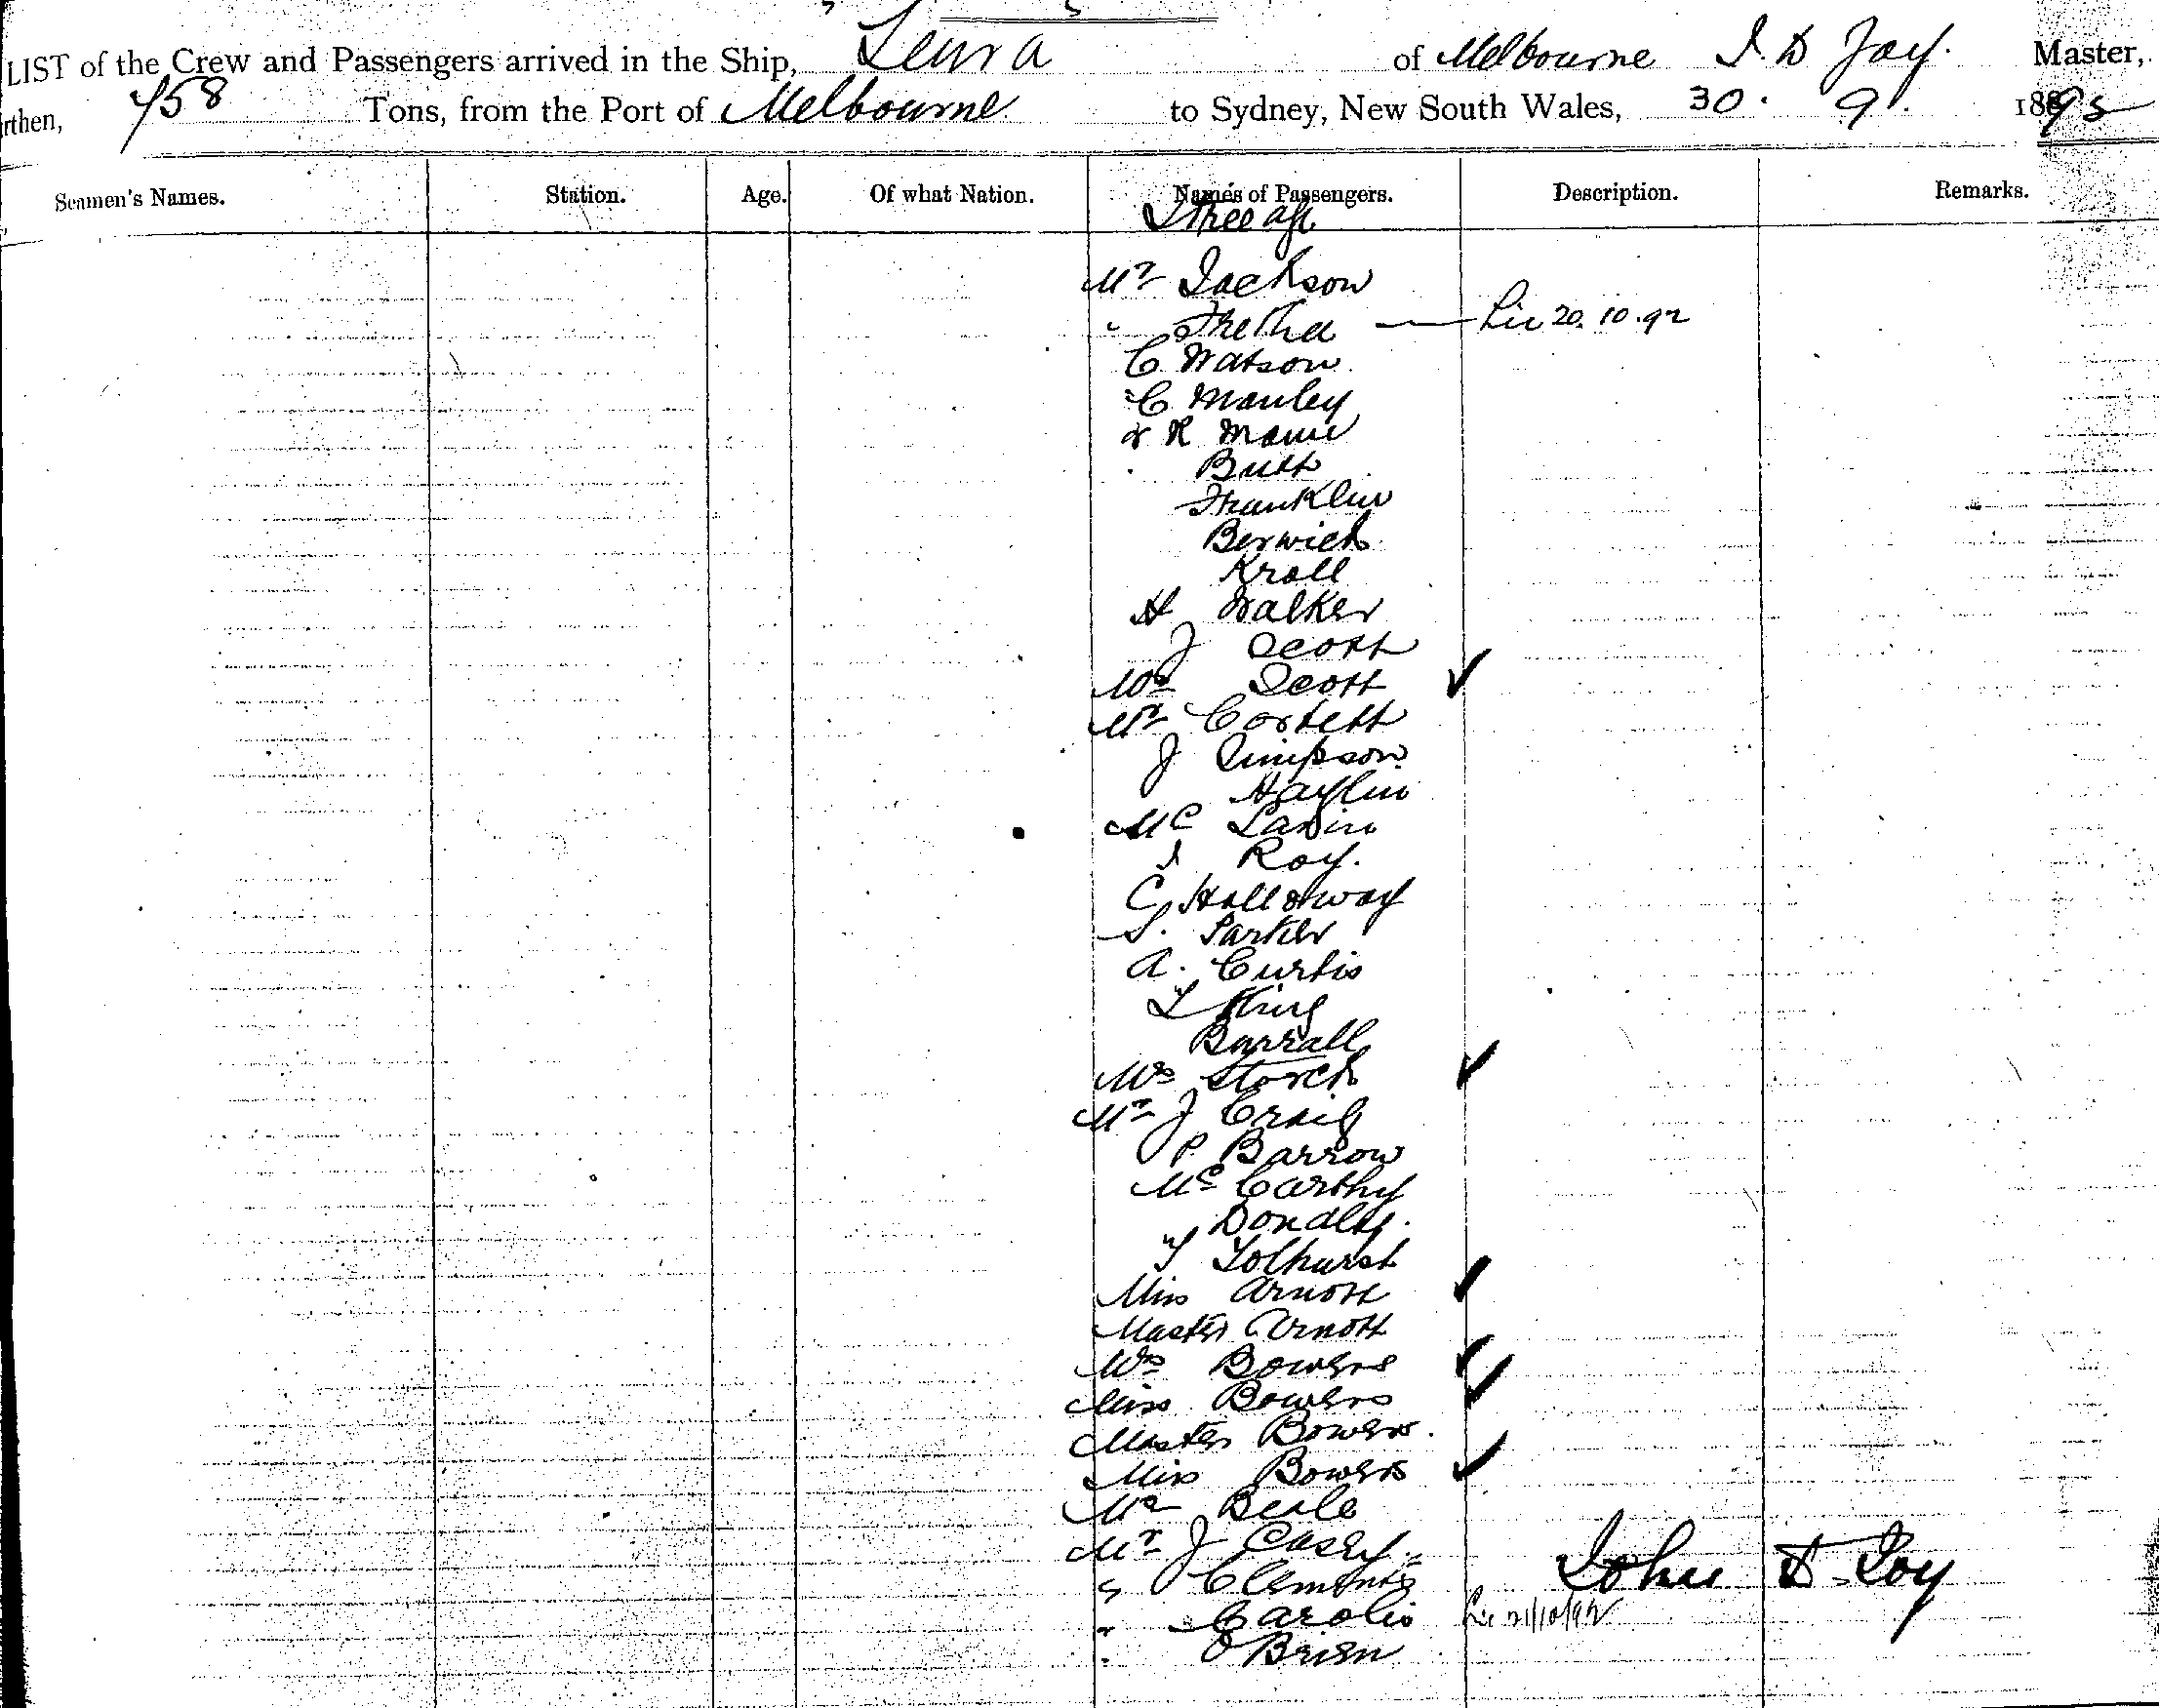 LIST of the Crew and Passengers arrived in the Ship, Leura of Melbourne J. D Joy. Master,
rthen, 458 Tons, from the Port of Melbourne to Sydney, New South Wales, 30. 9. 1892
Seamen's Names. Station. Age. Of what Nation. Names of Passengers. Description. Remarks.
Mr Jackson
Lic 20.10.92
C Watson
C Manley
R
Butt
Franklin
Berwick
Kroll
H Walker
J Scott
Mrs Scott
Mr Corbett
J Simpson
Mc
Roy.
C Holloway
S. Parker
A. Curtis
King
Burrall
Mrs Storck
Mr J Craig
P Barrow
McCarthy
T Tolhurst
Miss Arnott
Master Arnott
Mrs Bowers
Miss Bowers
Master Bowers.
Miss Bowers
Mr Beale
Mr J Casey
Clements
John D. Joy
Carolis Lic 21/10/92
O'Brien